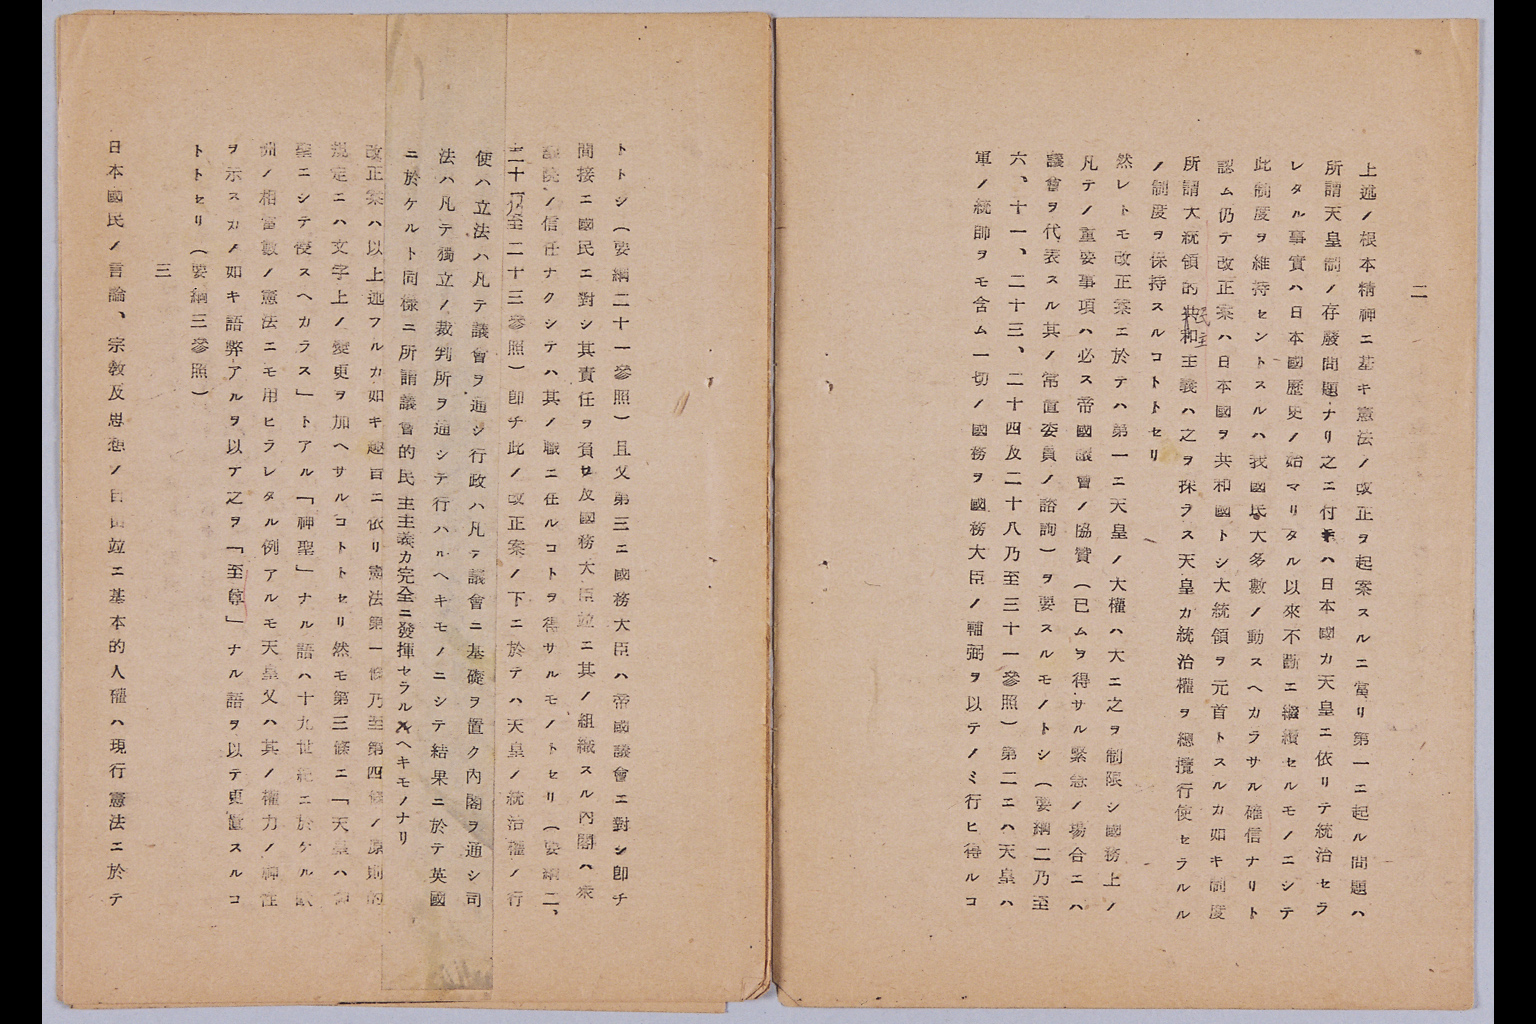 二
上述ノ根本精神ニ基キ憲法ノ改正ヲ起案スルニ當リ第一ニ起ル問題ハ
所謂天皇制ノ存廢問題ナリ之ニ付テハ日本國カ天皇ニ依リテ統治セラ
レタル事實ハ日本國歷史ノ始マリタル以來不斷ニ繼續セルモノニシテ
此制度ヲ維持セントスルハ我國民大多數ノ動スヘカラサル確信ナリト
認ム仍テ改正案ハ日本國ヲ共和國トシ大統領ヲ元首トスルカ如キ制度
所謂大統領的共和主義ハ之ヲ採ラス天皇カ統治權ヲ總攬行使セラルル
民主
ノ制度ヲ保持スルコトトセリ
然レトモ改正案ニ於テハ第一ニ天皇ノ大權ハ大ニ之ヲ制限シ國務上ノ
凡テノ重要事項ハ必ス帝國議會ノ協贊(已ムヲ得サル緊急ノ場合ニハ
議會ヲ代表スル其ノ常置委員ノ諮詢)ヲ要スルモノトシ(要綱二乃至
六、十一、二十三、二十四及二十八乃至三十一參照)第二ニハ天皇ハ
軍ノ統帥ヲモ含ム一切ノ國務ヲ國務大臣ノ輔弼ヲ以テノミ行ヒ得ルコ
トトシ(要綱二十一參照)且又第三ニ國務大臣ハ帝國議會ニ對シ卽チ
間接ニ國民ニ對シ其責任ヲ負ヒ及國務大臣竝ニ其ノ組織スル內閣ハ衆
議院ノ信任ナクシテハ其ノ職ニ在ルコトヲ得サルモノトセリ(要綱二、
二十乃至二十三參照)卽チ此ノ改正案ノ下ニ於テハ天皇ノ統治權ノ行
使ハ立法ハ凡テ議會ヲ通シ行政ハ凡テ議會ニ基礎ヲ置ク內閣ヲ通シ司
法ハ凡テ獨立ノ裁判所ヲ通シテ行ハルヘキモノニシテ結果ニ於テ英國
ニ於ケルト同樣ニ所謂議會的民主主義カ完全ニ發揮セラルヘキモノナリ
改正案ハ以上述フルカ如キ趣旨ニ依リ憲法第一條乃至第四條ノ原則的
規定ニハ文字上ノ變更ヲ加ヘサルコトトセリ然モ第三條ニ「天皇ハ神
聖ニシテ侵スヘカラス」トアル「神聖」ナル語ハ十九世紀ニ於ケル歐
州ノ相當數ノ憲法ニモ用ヒラレタル例アルモ天皇又ハ其ノ權力ノ神性
ヲ示スカノ如キ語弊アルヲ以テ之ヲ「至尊」ナル語ヲ以テ更置スルコ
トトセリ(要綱三參照)
三
日本國民ノ言論、宗敎及思想ノ自由竝ニ基本的人權ハ現行憲法ニ於テ